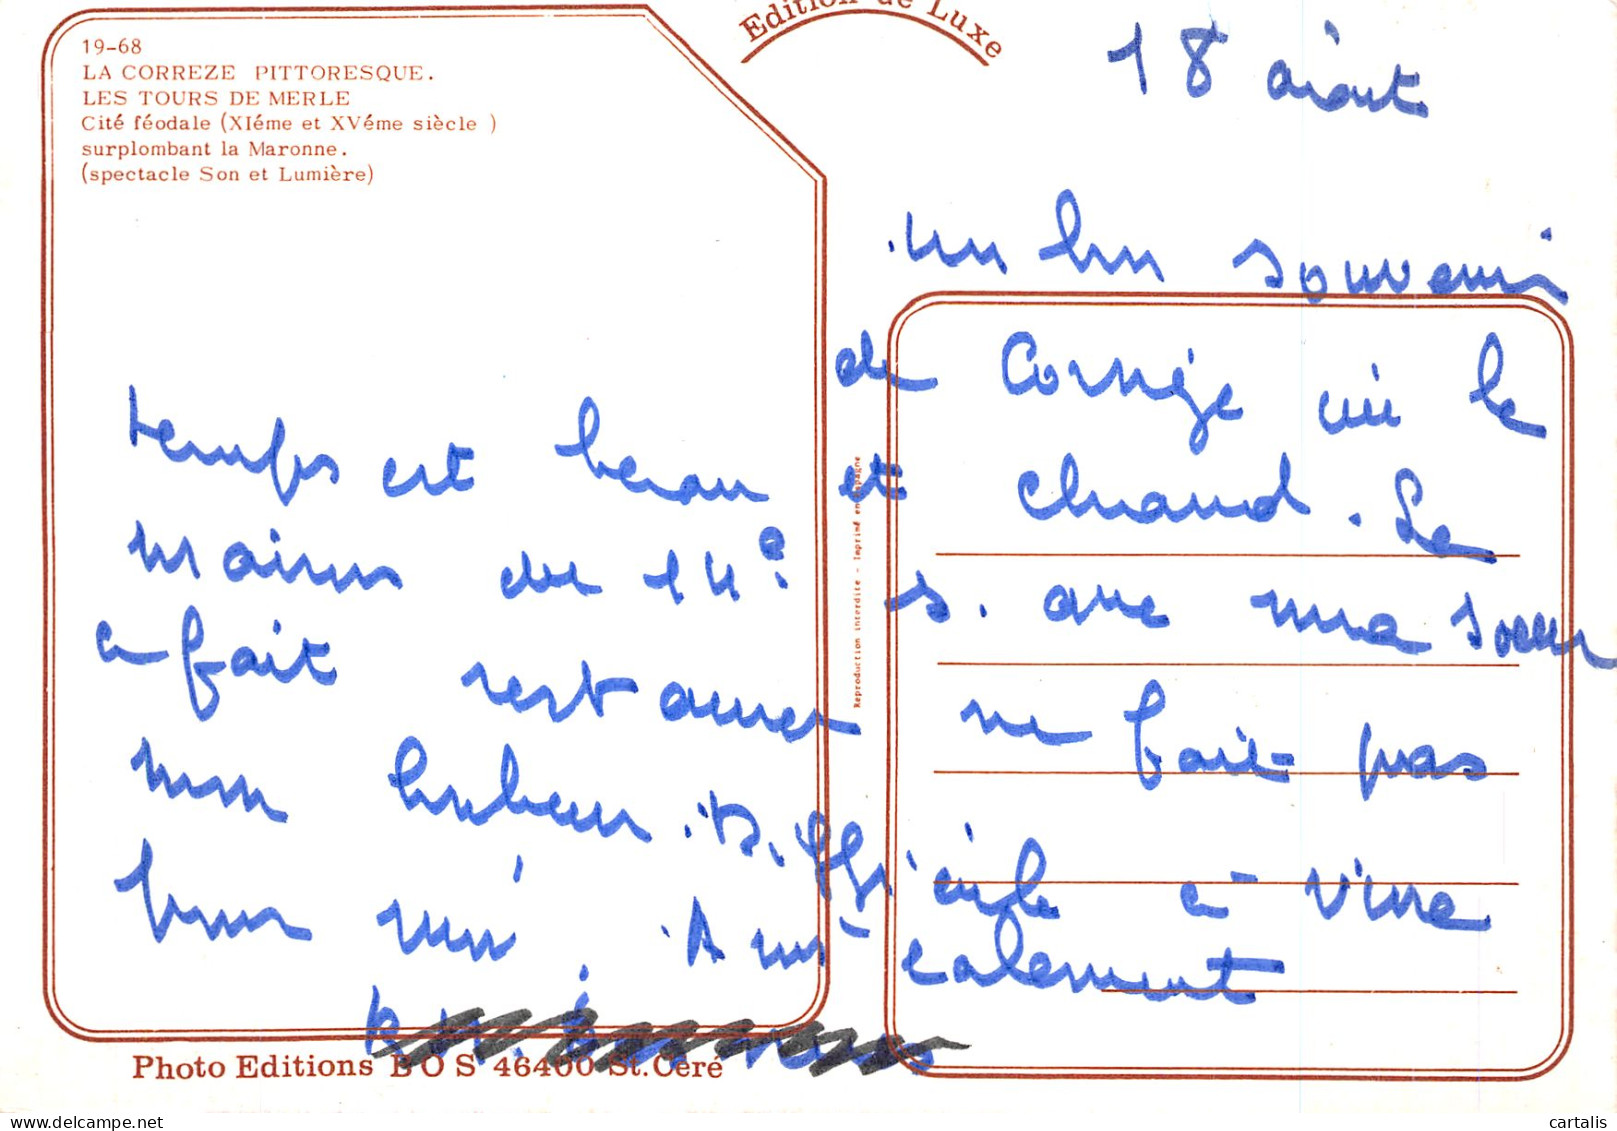 19-68
LA CORREZE PITTORESQUE.
LES TOURS DE MERLE
Cité féodale (XIéme et XVéme siècle )
surplombant la Maronne.
(spectacle Son et Lumière)
Edition de Luxe
18 août
un bon souvenir
de Corrèze où le
temps est beau et chaud. Le
de s. avec ma soeur
a fait restaurer ne fait pas
mon
pour moi. à vivre
Amicalement
Reproduction interdite - Imprimé en Espagne
Photo Editions BOS 46400 St.Céré
cartalis